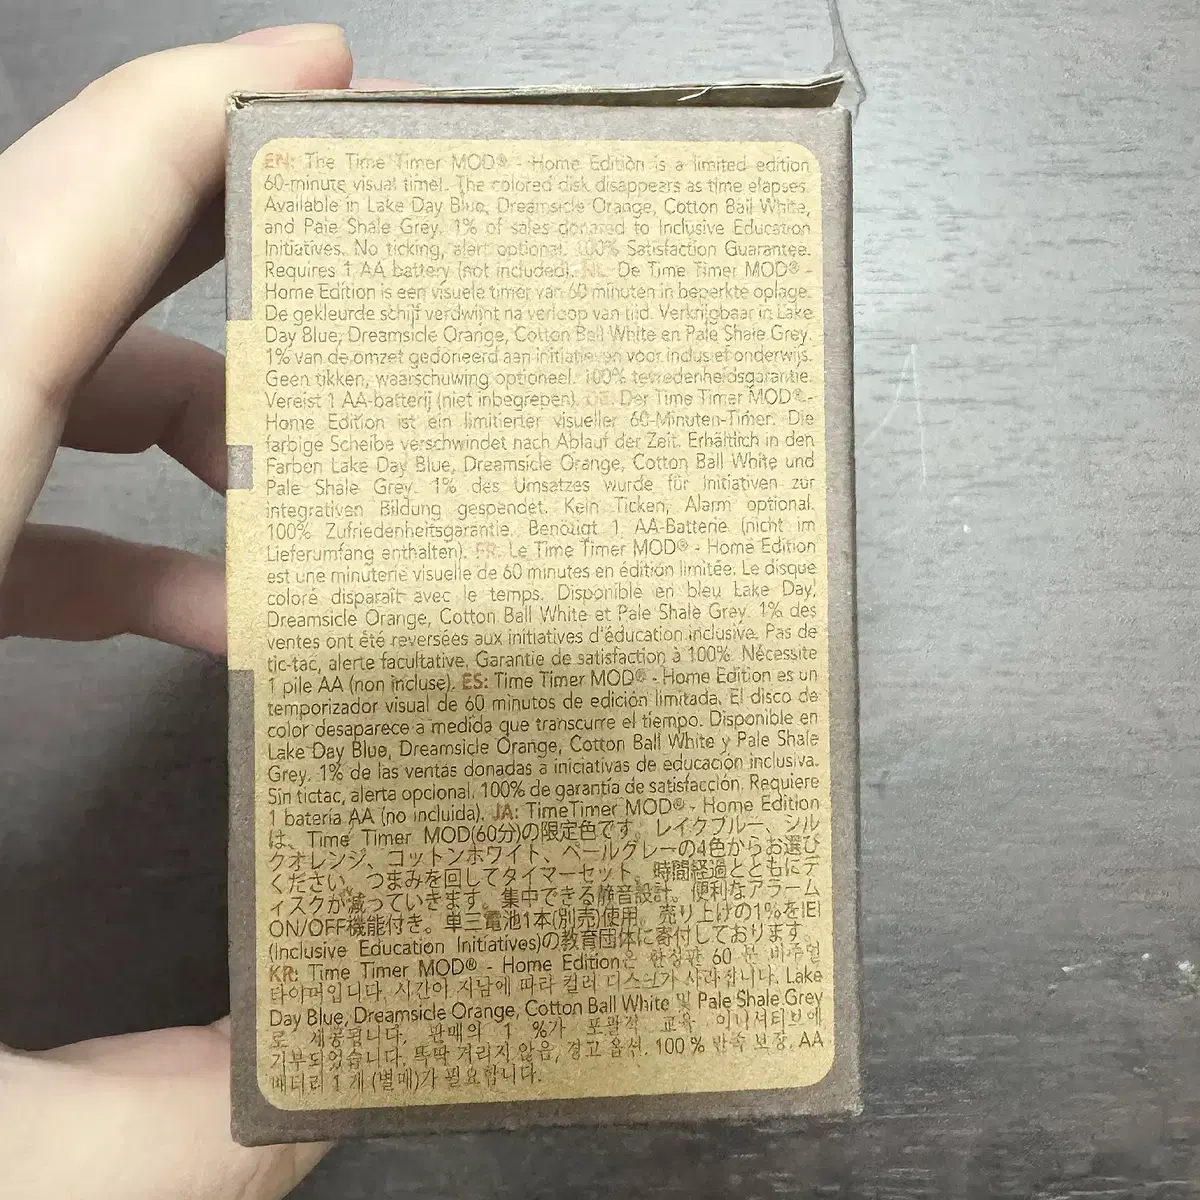 EN: The Time Timer MOD® - Home Edition is a limited edition
60-minute visual timer. The colored disk disappears as time elapses.
Available in Lake Day Blue, Dreamsicle Orange, Cotton Ball White,
and Pale Shale Grey. 1% of sales donated to Inclusive Education
Initiatives. No ticking, alert optional. 100% Satisfaction Guarantee.
Requires 1 AA battery (not included). NL: De Time Timer MOD® -
Home Edition is een visuele timer van 60 minuten in beperkte oplage.
De gekleurde schijf verdwijnt na verloop van tijd. Verkrijgbaar in Lake
Day Blue, Dreamsicle Orange, Cotton Ball White en Pale Shale Grey.
1% van de omzet gedoneerd aan initiatieven voor inclusief onderwijs.
Geen tikken, waarschuwing optioneel. 100% tevredenheidsgarantie.
Vereist 1 AA-batterij (niet inbegrepen). DE: Der Time Timer MOD® -
Home Edition ist ein limitierter visueller 60-Minuten-Timer. Die
farbige Scheibe verschwindet nach Ablauf der Zeit. Erhältlich in den
Farben Lake Day Blue, Dreamsicle Orange, Cotton Ball White und
Pale Shale Grey. 1% des Umsatzes wurde für Initiativen zur
integrativen Bildung gespendet. Kein Ticken, Alarm optional.
100% Zufriedenheitsgarantie. Benötigt 1 AA-Batterie (nicht im
Lieferumfang enthalten). FR: Le Time Timer MOD® - Home Edition
est une minuterie visuelle de 60 minutes en édition limitée. Le disque
coloré disparaît avec le temps. Disponible en bleu Lake Day,
Dreamsicle Orange, Cotton Ball White et Pale Shale Grey. 1% des
ventes ont été reversées aux initiatives d'éducation inclusive. Pas de
tic-tac, alerte facultative. Garantie de satisfaction à 100%. Nécessite
1 pile AA (non incluse). ES: Time Timer MOD® - Home Edition es un
temporizador visual de 60 minutos de edición limitada. El disco de
color desaparece a medida que transcurre el tiempo. Disponible en
Lake Day Blue, Dreamsicle Orange, Cotton Ball White y Pale Shale
Grey. 1% de las ventas donadas a iniciativas de educación inclusiva.
Sin tictac, alerta opcional. 100% de garantía de satisfacción. Requiere
1 batería AA (no incluida). JA: TimeTimer MOD® - Home Edition
は、Time Timer MOD(60分)の限定色です。レイクブルー、シル
クオレンジ、コットンホワイト、ペールグレーの4色からお選び
ください。つまみを回してタイマーセット。時間経過とともにデ
ィスクが減っていきます。集中できる静音設計。便利なアラーム
ON/OFF機能付き。単三電池1本(別売)使用。売り上げの1%をIEI
(Inclusive Education Initiatives)の教育団体に寄付しております。
KR: Time Timer MOD® - Home Edition은 한정판 60 분 비주얼
타이머입니다. 시간이 지남에 따라 컬러 디스크가 사라집니다. Lake
Day Blue, Dreamsicle Orange, Cotton Ball White 및 Pale Shale Grey
로 제공됩니다. 판매의 1 %가 포괄적 교육 이니셔티브에
기부되었습니다. 똑딱 거리지 않음, 경고 옵션. 100 % 만족 보장. AA
배터리 1 개 (별매)가 필요합니다.